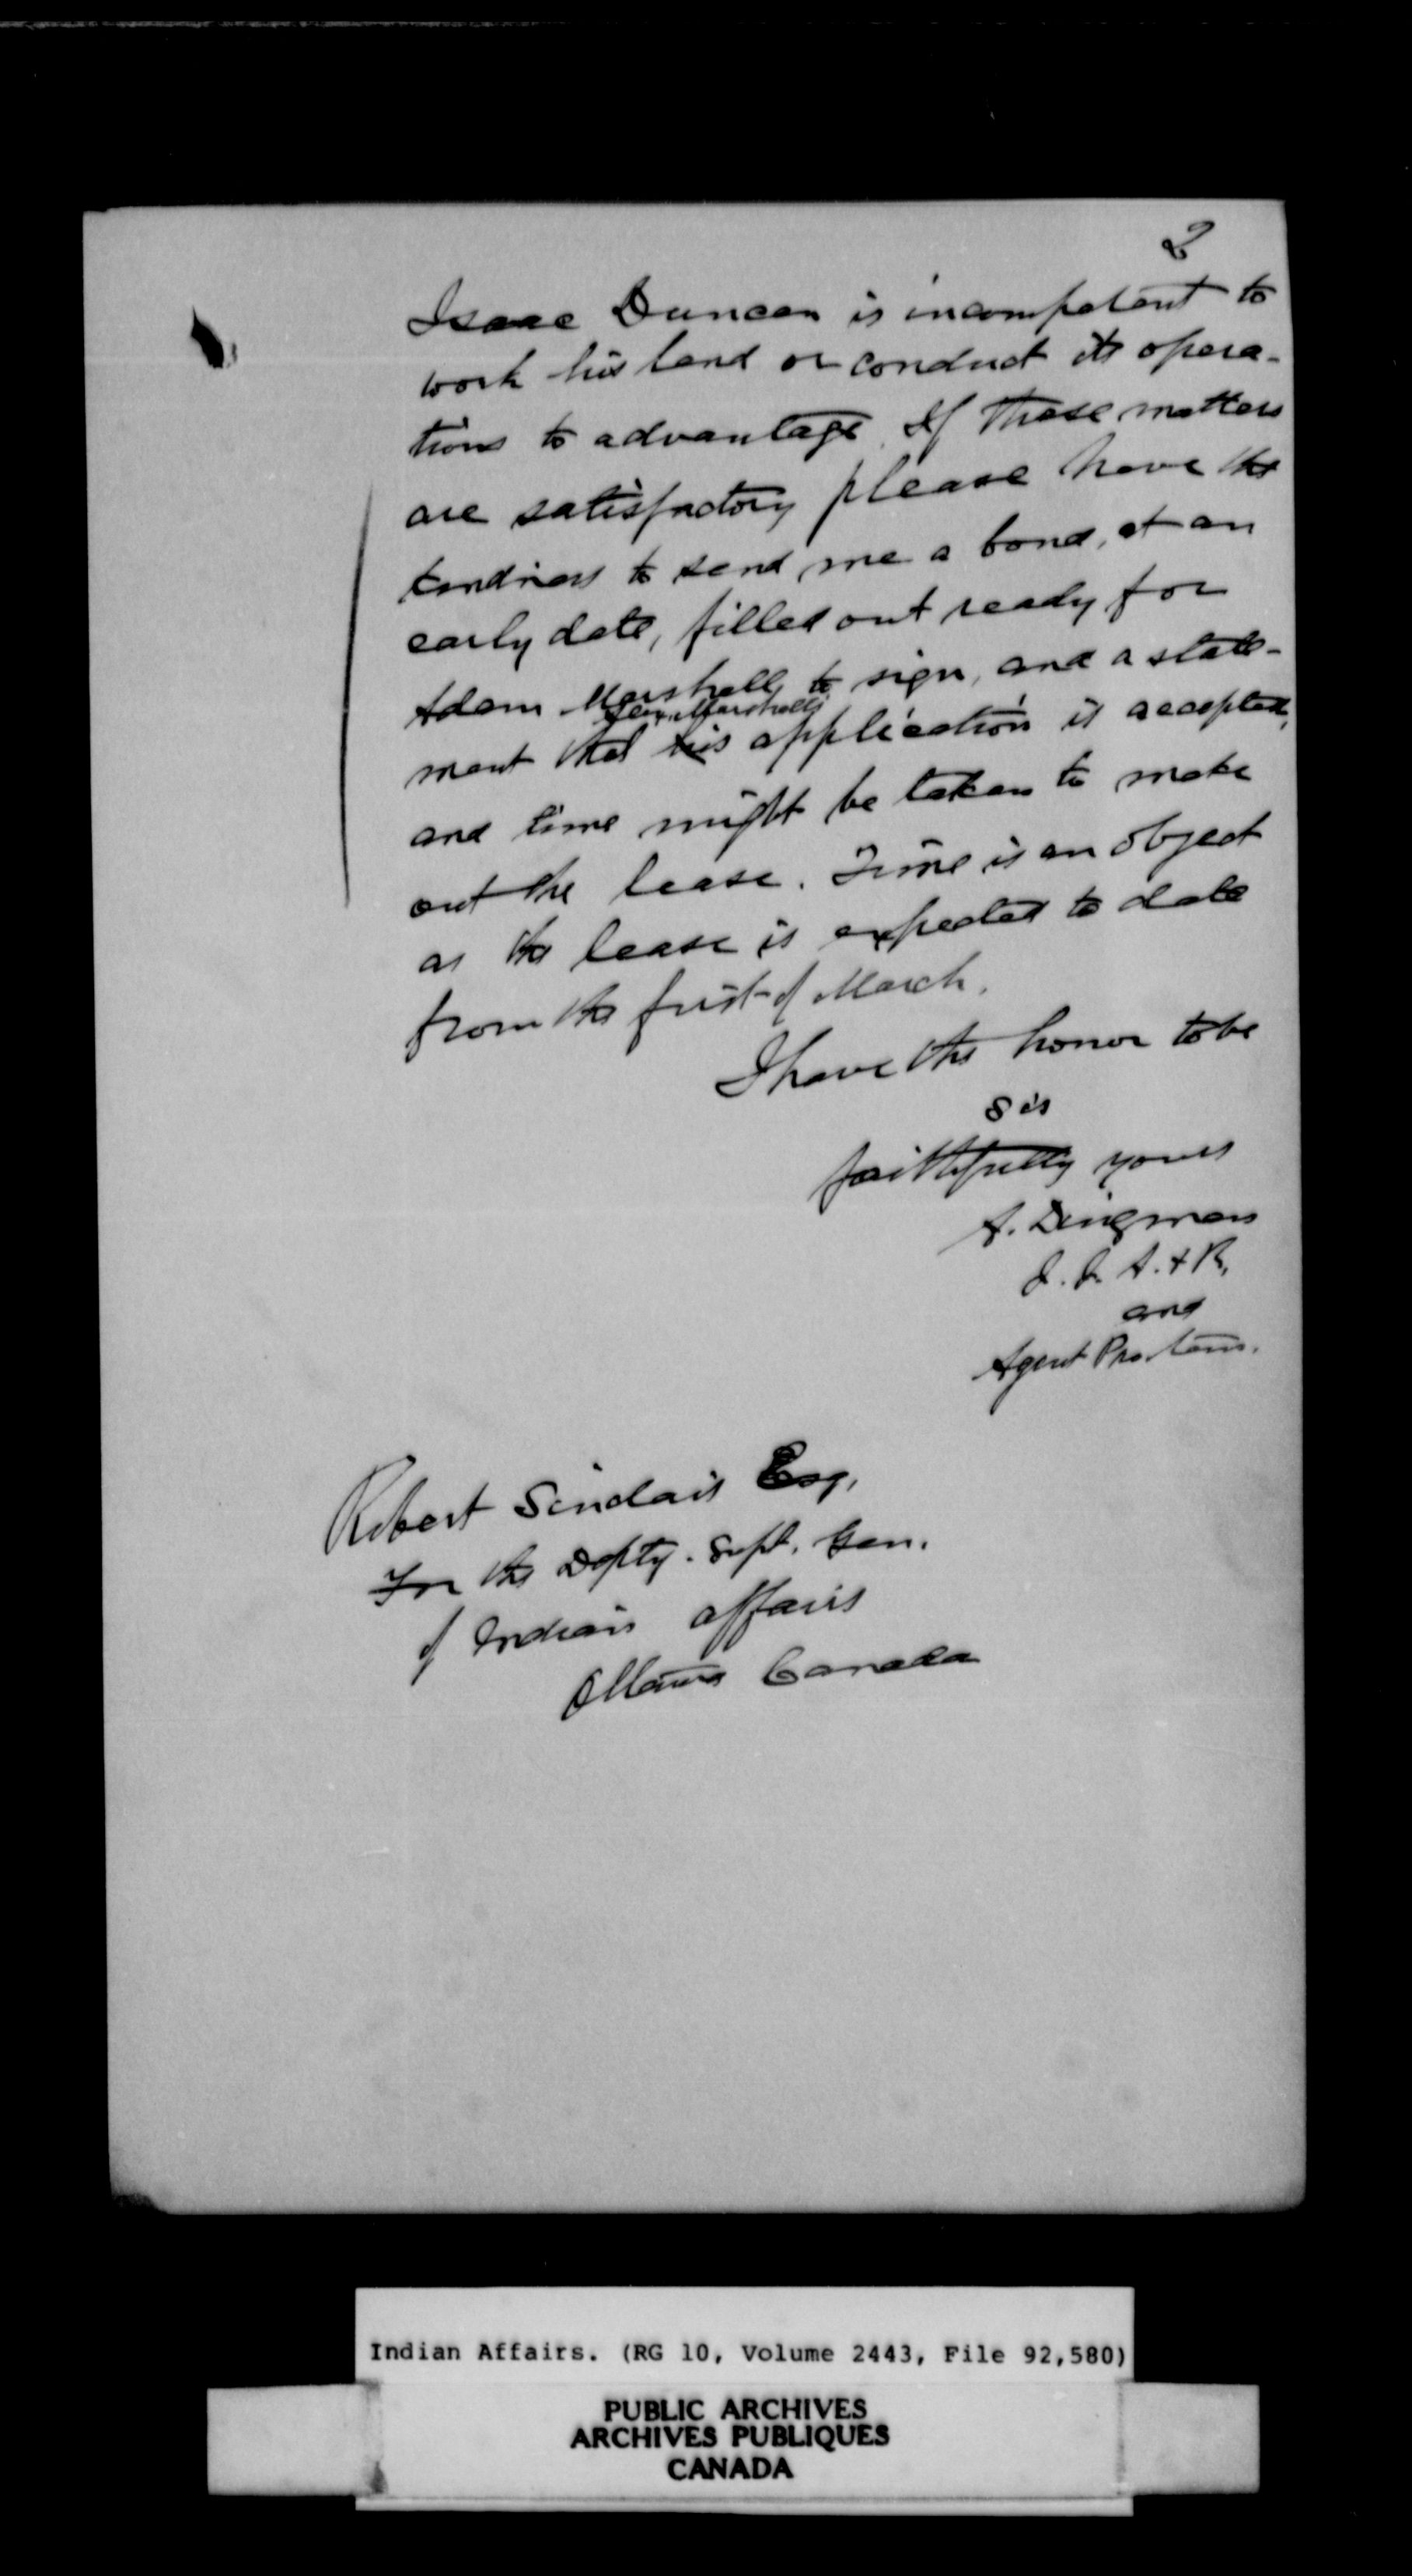 2
Isaac Duncan is incompetent to
work his land or conduct its opera-
tions to advantage. If these matters
are satisfactory please have the
kindness to send me a bond, at an
early date, filled out ready for
Adam Marshall to sign, and a state-
Marshall's
ment that his application is accepted,
and time might be taken to make
out the lease. Time is an object
as the lease is expected to date
from the first of March.
I have the honor to be
Sir
faithfully yours
A. Dingman
and
Agent Pro. tem.
Robert Sinclair Esq.
For the Depty. Supt. Gen.
of Indian affairs
Ottawa Canada
Indian Affairs. (RG 10, Volume 2443, File 92,580)
PUBLIC ARCHIVES
ARCHIVES PUBLIQUES
CANADA